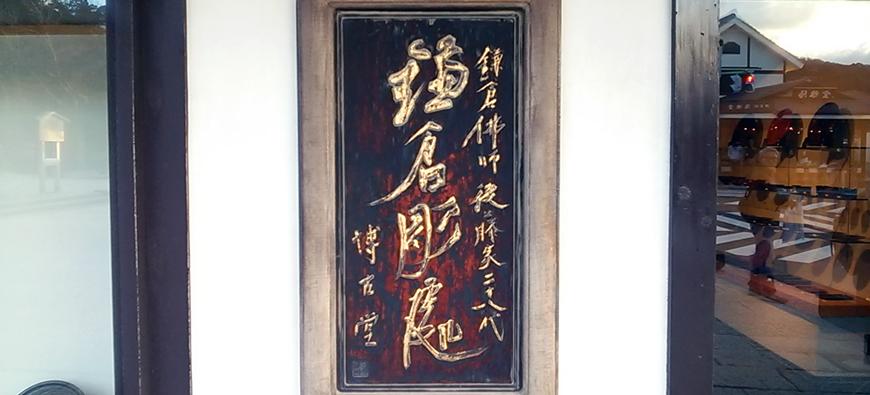 鎌倉佛師後藤斎二十八代
鎌倉彫處
博古堂